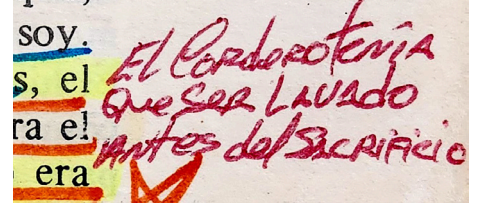 soy.
s, el
ra el
era
El Cordero tenía
Que SER LAVADO
Antes del SACRIFICIO